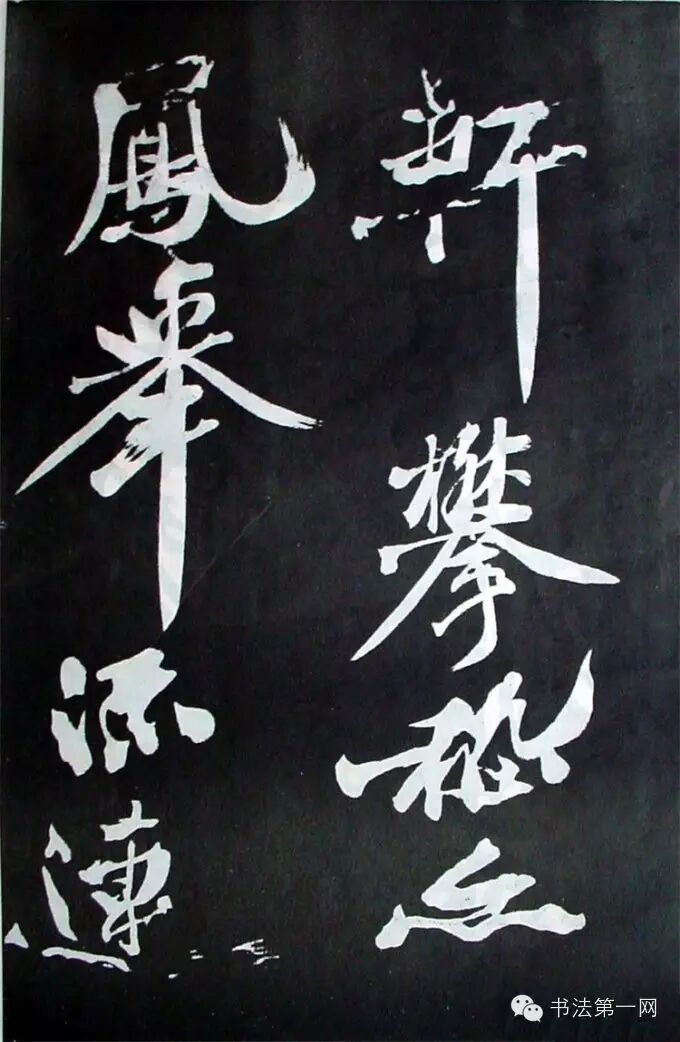 軒攀嵇亦
鳳舉流連
书法第一网